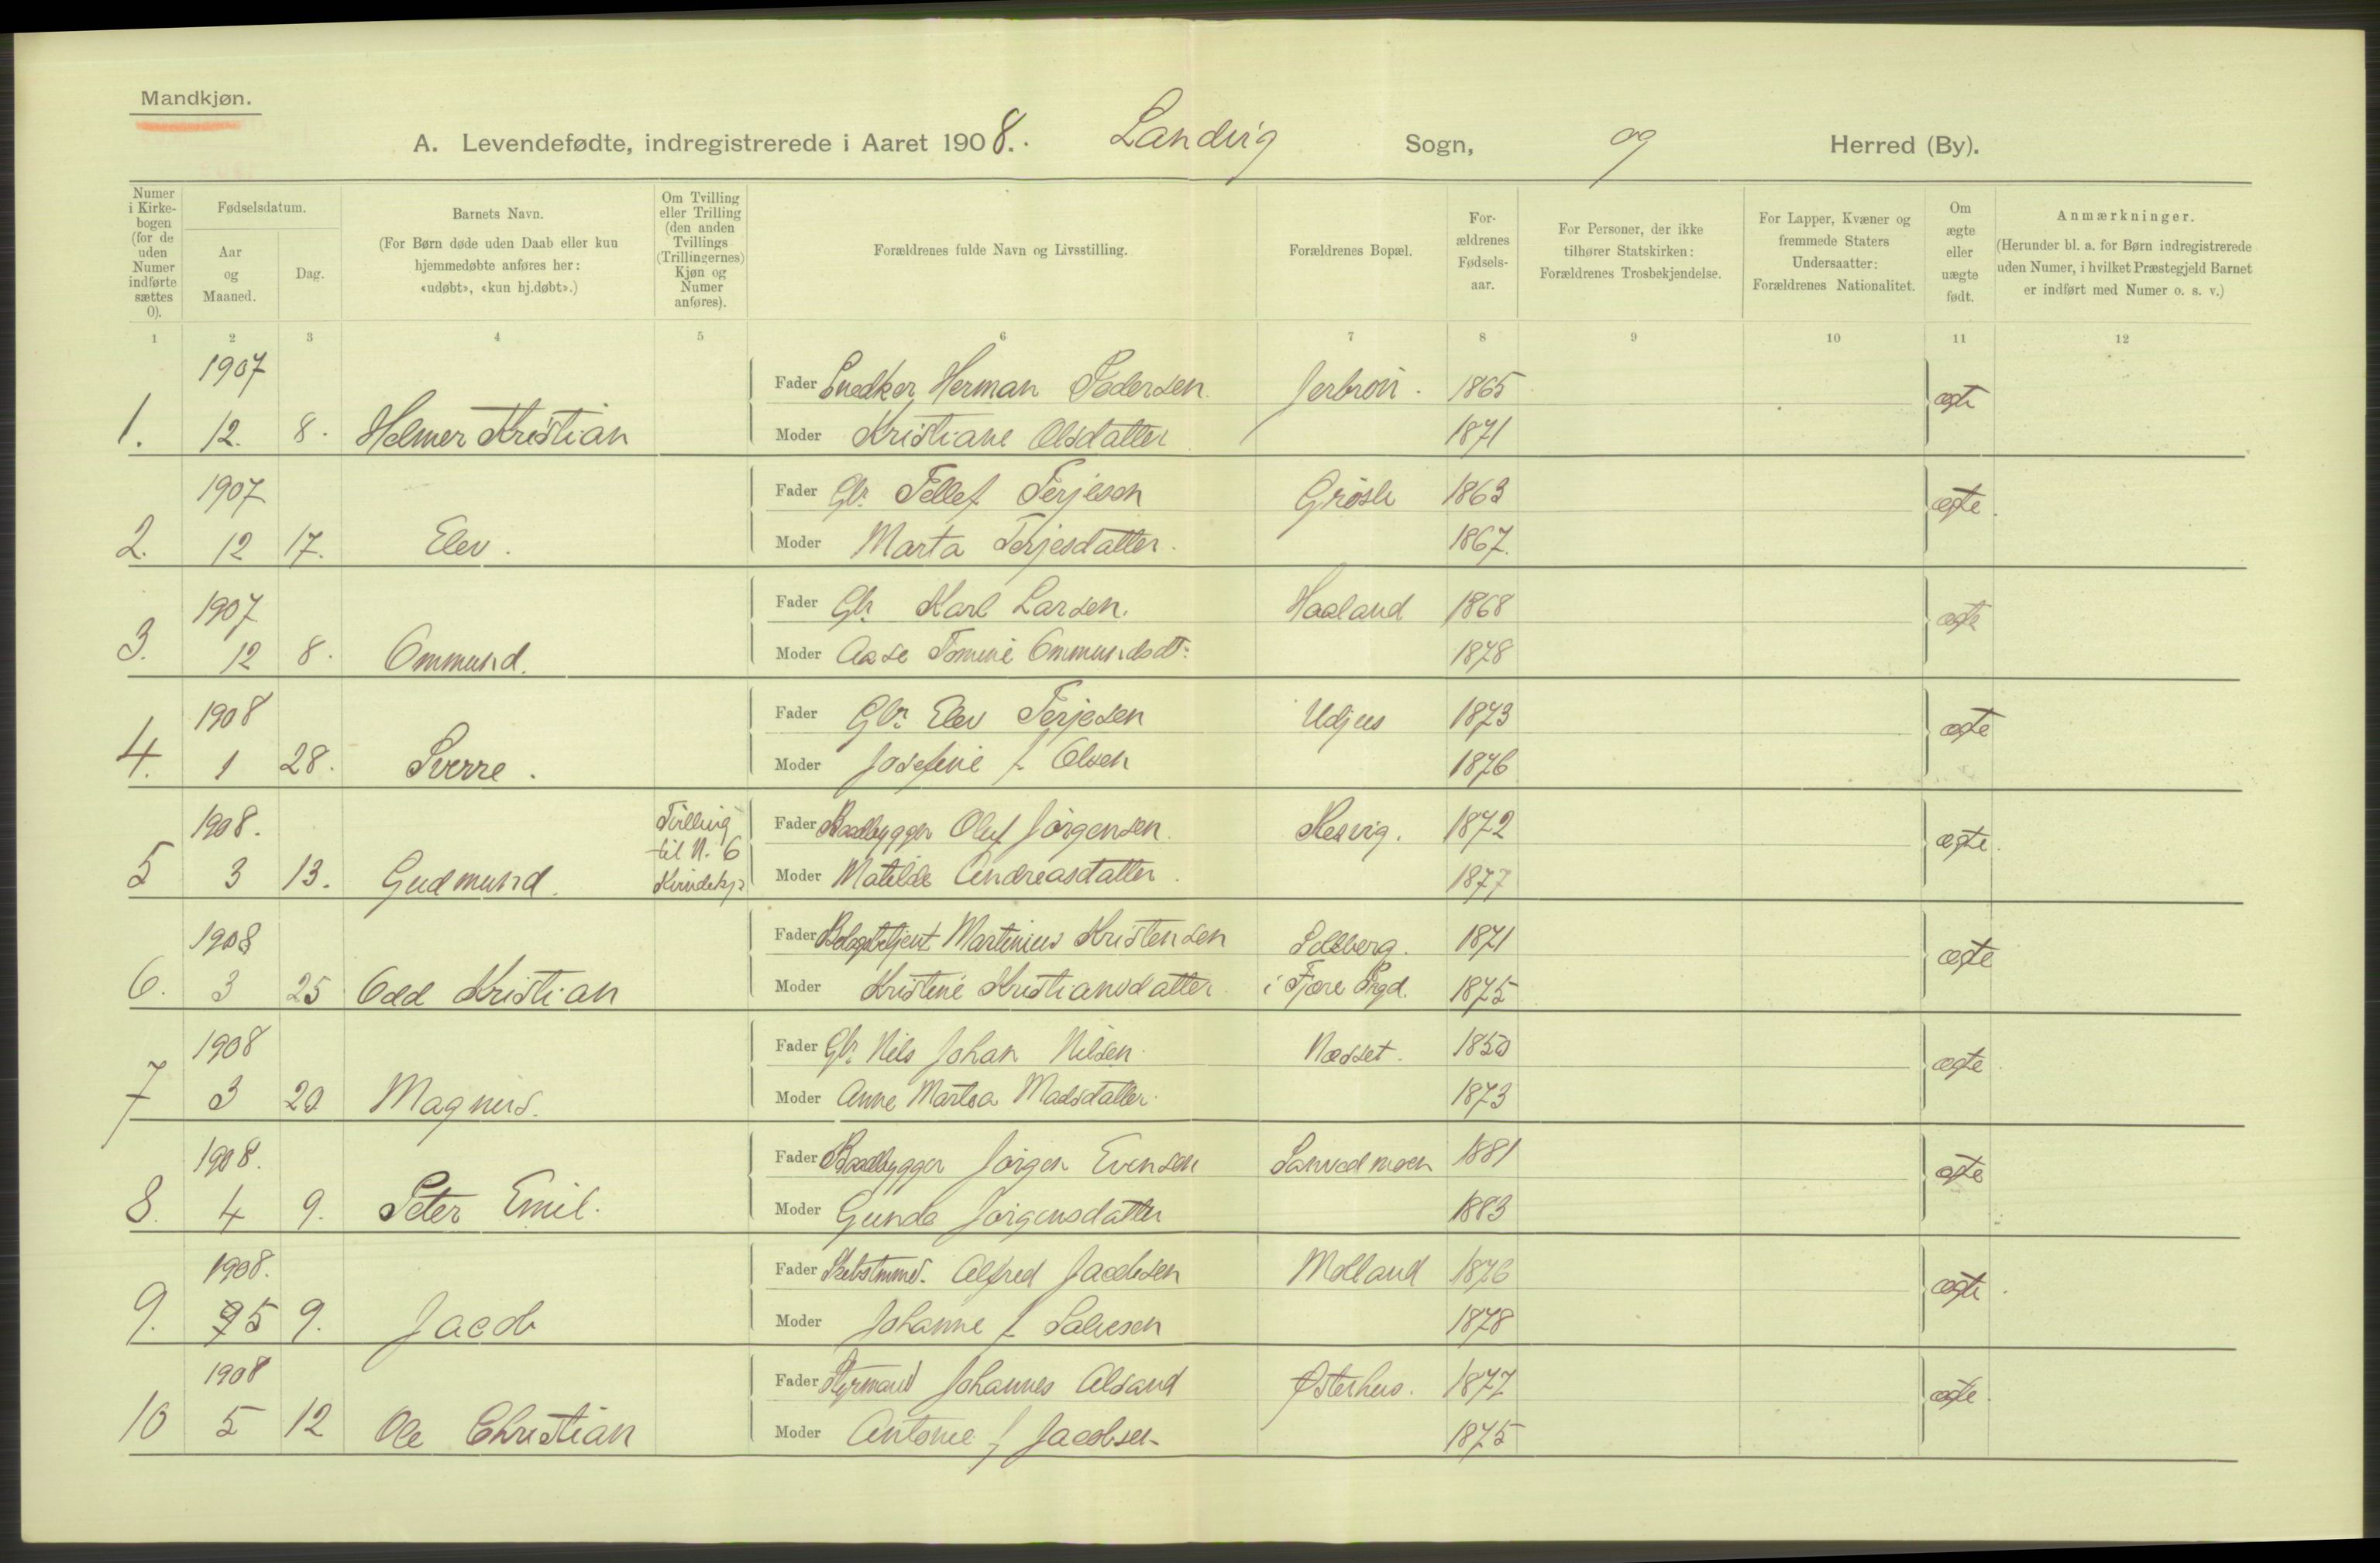 Mandkjøn.
A. Levendefødte, indregistrerede i Aaret 1908. Landvig Sogn, og Herred (By).
Numer i Kirkebogen (for de uden Numer indførte sættes 0).
Fødselsdatum.
Aar og Maaned.
Dag.
Barnets Navn.
(For Børn døde uden Daab eller kun hjemmedøbte anføres her: «udøbt», «kun hj.døbt».)
Om Tvilling eller Trilling (den anden Tvillings (Trillingernes) Kjøn og Numer anføres).
Forældrenes fulde Navn og Livsstilling.
Forældrenes Bopæl.
For-ældrenes Fødsels-aar.
For Personer, der ikke tilhører Statskirken: Forældrenes Trosbekjendelse.
For Lapper, Kvæner og fremmede Staters Undersaatter: Forældrenes Nationalitet.
Om ægte eller uægte født.
Anmærkninger.
(Herunder bl. a. for Børn indregistrerede uden Numer, i hvilket Præstegjeld Barnet er indført med Numer o. s. v.)
1 2 3 4 5 6 7 8 9 10 11 12
1907 Fader Snedker Herman Pedersen. 1865 ægte
1. 12. 8. Helmer Kristian Moder Kristiane Olsdatter 1871
1907 Fader Gbr. Tellef Terjesen Grøsle 1863 ægte.
2. 12 17. Elev. Moder Marta Terjesdatter. 1867.
1907 Fader Gbr. Karl Larsen. Haaland 1868 ægte
3. 12 8. Ommund. Moder Aase Tomine Ommundsdt. 1878
1908 Fader Gbr. Elev Terjesen Udjus 1873 ægte
4. 1 28. Sverre. Moder Josefine f. Olsen 1876
1908. Tvilling til N. 6 Kvindekj. Fader Baadbygger Oluf Jørgensen. Resvig. 1872 ægte.
5 3 13. Gudmund. Moder Matilde Andreasdatter. 1877
1908 Fader Martinius Kristensen Solberg. 1871 ægte
6. 3 25 Odd Kristian Moder Kristine Kristiansdatter. i Fjære Prgd. 1875
1908 Fader Gbr. Nils Johan Nilsen. Næsset. 1850 ægte
7 3 20 Magnus. Moder Anne Martea Madsdatter. 1873
1908. Fader Baadbygger Jørgen Evensen 1881 ægte
8. 4 9. Peter Emil. Moder Gunda Jørgensdatter 1883
1908. Fader Skibstømmd. Alfred Jacobsen Molland 1876 ægte.
9. 5 9. Jacob Moder Johanne f. Salvesen 1878
1908 Fader Styrmand Johannes Alsand Østerhus. 1877 ægte.
10 5 12 Ole Christian Moder Antonie f. Jacobsen 1875